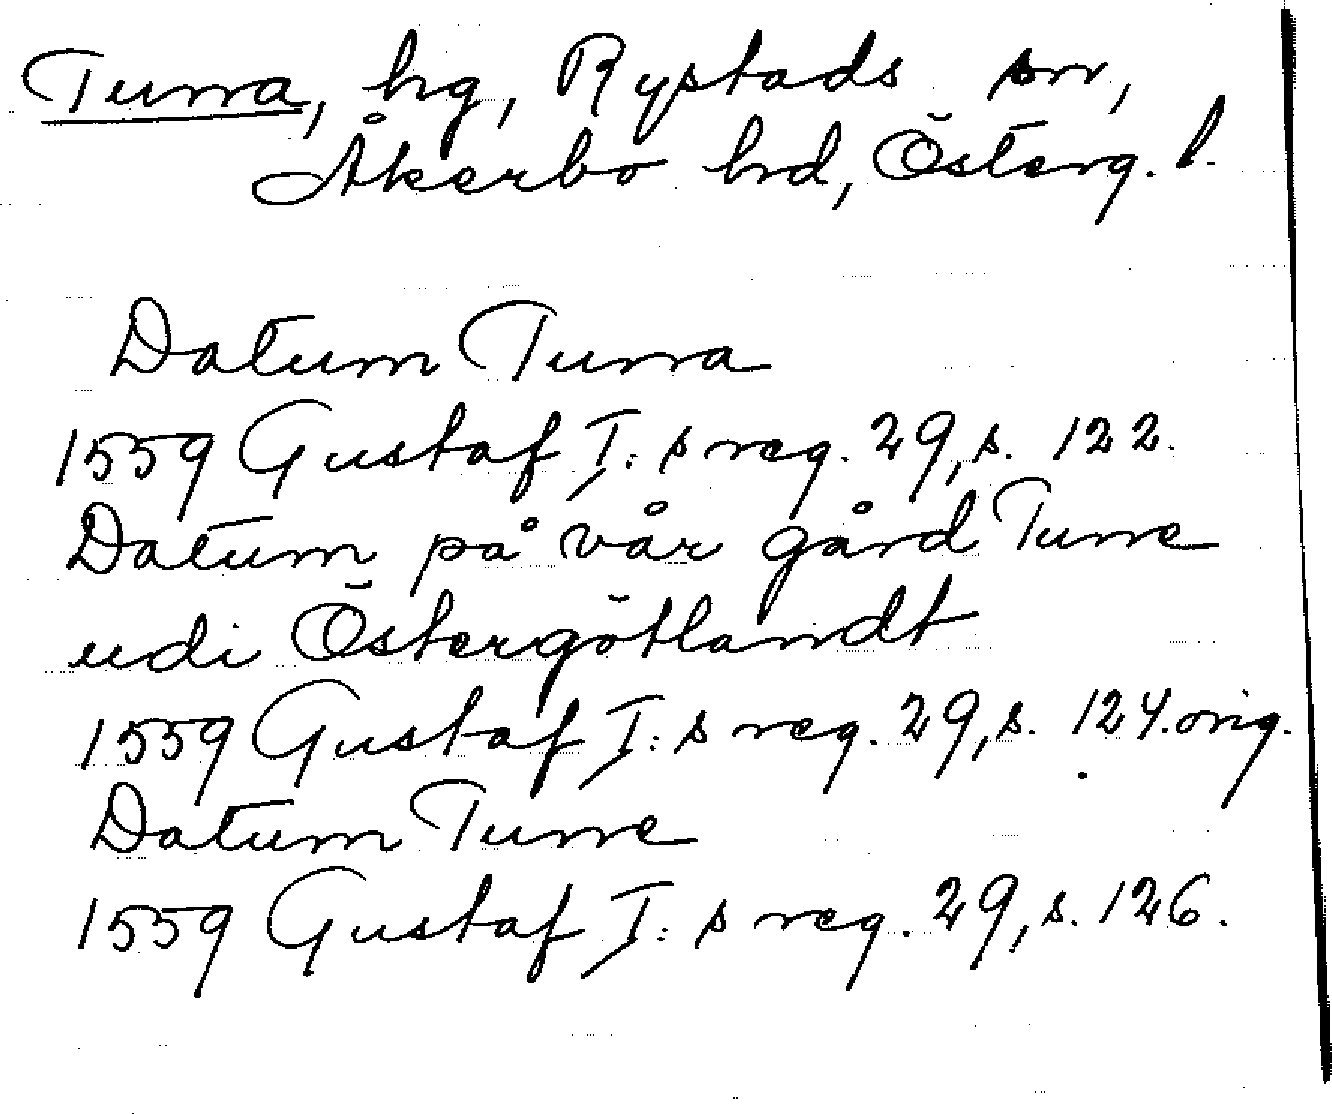 Tunna, hg, Rystads sn,
Åkerbo hd, Österg. l.
Datum Tunna
1559 Gustaf I:s reg. 29, s. 122.
Datum på vår gård Tunne
udi Östergötlandt
1559 Gustaf I:s reg. 29, s. 124. orig.
Datum Tunne
1559 Gustaf I:s reg. 29, s. 126.